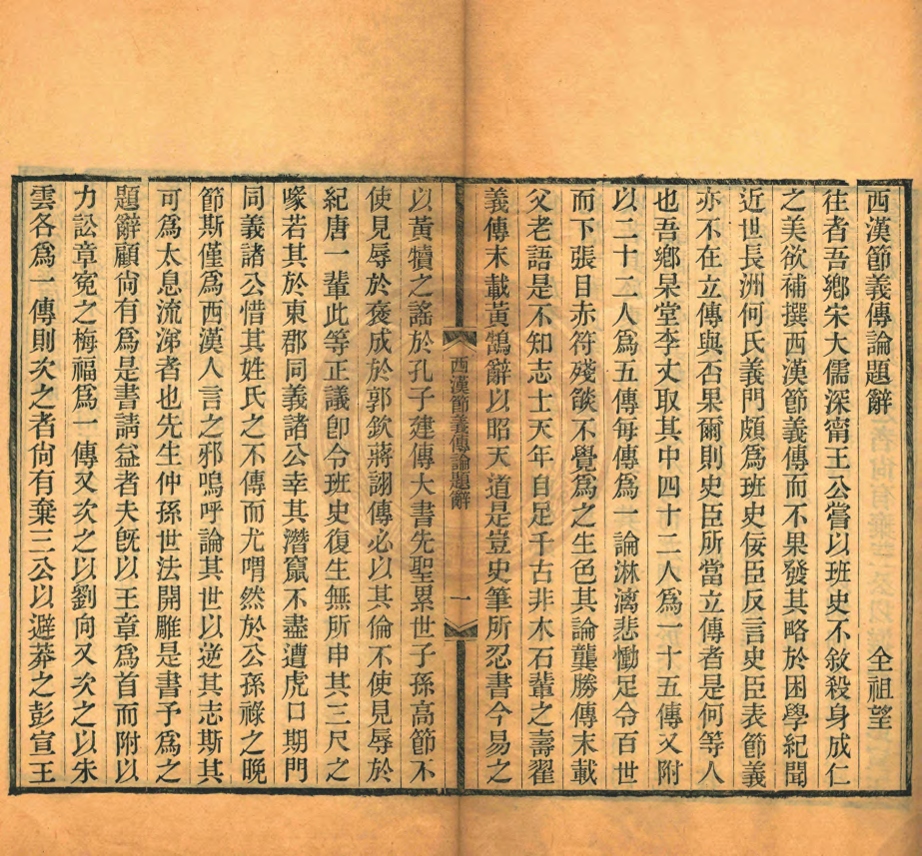 西漢節義傳論題辭
全祖望
往者吾鄉宋大儒深甯王公嘗以班史不敘殺身成仁
之美欲補撰西漢節義傳而不果發其略於困學紀聞
近世長洲何氏義門頗為班史佞臣反言史臣表節義
亦不在立傳與否果爾則史臣所當立傳者是何等人
也吾鄉杲堂李丈取其中四十二人為一十五傳又附
以二十二人為五傳每傳為一論淋漓悲慟足令百世
而下張目赤符殘燄不覺為之生色其論龔勝傳末載
父老語是不知志士天年自足千古非木石輩之壽翟
義傳末載黃鵠辭以昭天道是豈史筆所忍書今易之
西漢節義傳論題辭
一
以黃犢之謠於孔子建傳大書先聖累世子孫高節不
使見辱於褒成於郭欽蔣詡傳必以其倫不使見辱於
紀唐一輩此等正議卽令班史復生無所申其三尺之
喙若其於東郡同義諸公幸其潛竄不盡遭虎口期門
同義諸公惜其姓氏之不傳而尤喟然於公孫祿之晚
節斯僅為西漢人言之邪嗚呼論其世以逆其志斯其
可為太息流涕者也先生仲孫世法開雕是書予為之
題辭顧尙有為是書請益者夫旣以王章為首而附以
力訟章冤之梅福為一傳又次之以劉向又次之以朱
雲各為一傳則次之者尙有棄三公以避莽之彭宣王